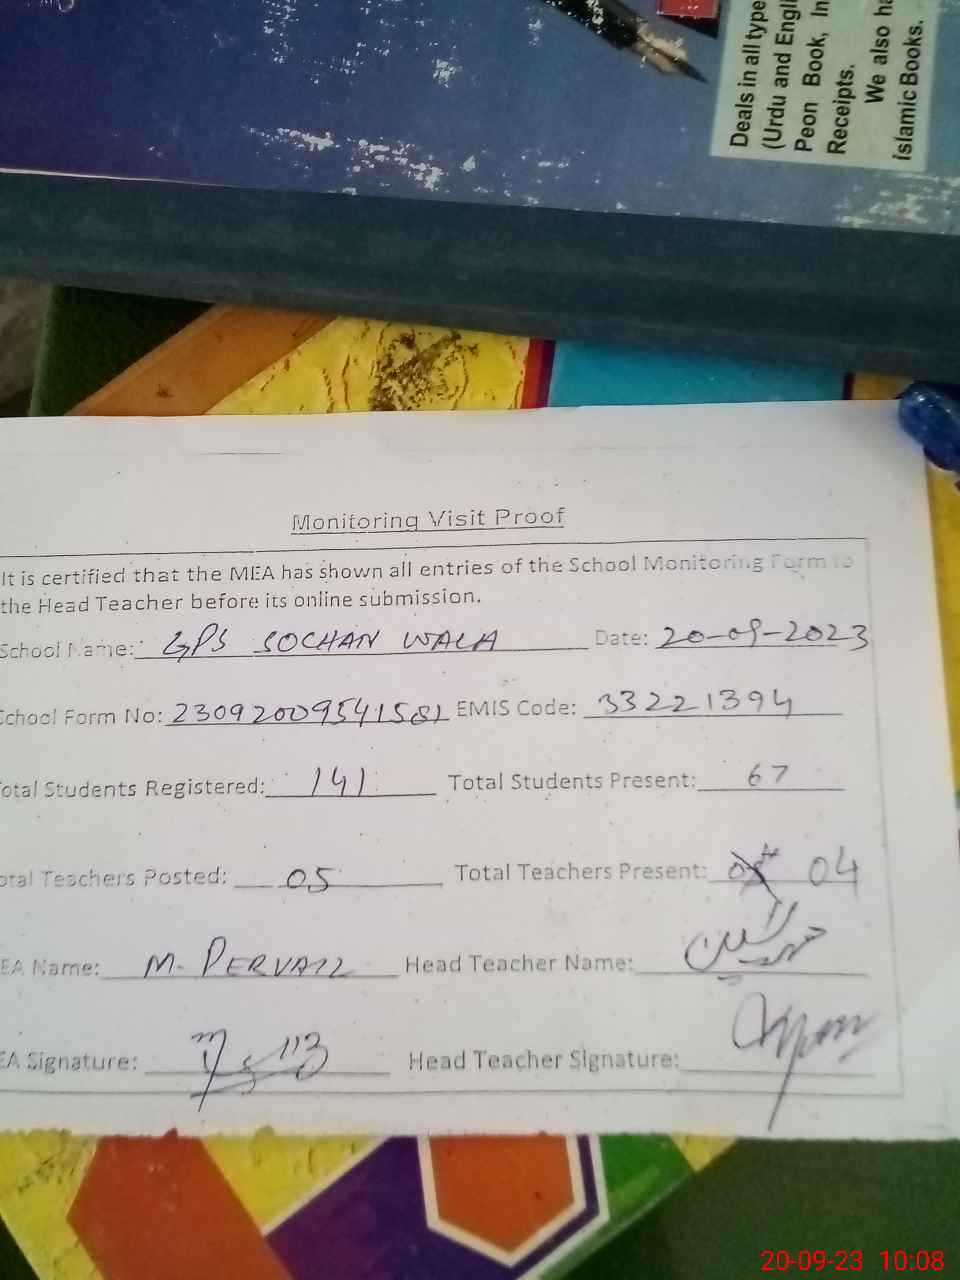 Deals in all type
(Urdu and Engli
Peon Book, In
Receipts.
We also ha
islamic Books.
Monitoring Visit Proof
It is certified that the MEA has shown all entries of the School Monitoring Form to
the Head Teacher before its online submission.
School Name: GPS SOCHAN WALA Date: 20-09-2023
School Form No: 23092009541581 EMIS Code: 33221394
otal Students Registered: 141 Total Students Present: 67
otal Teachers Posted: 05 Total Teachers Present: 04
EA Name: M. PERVAIZ Head Teacher Name:
EA Signature: Head Teacher Signature:
20-09-23 10:08